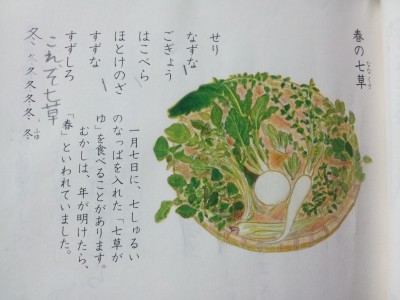 春の七草
ななくさ
せり
なずな
ごぎょう
はこべら
ほとけのざ
すずな
すずしろ
これぞ七草
一月七日に、七しゅるい
のなっぱを入れた「七草が
ゆ」を食べることがあります。
むかしは、年が明けたら、
「春」といわれていました。